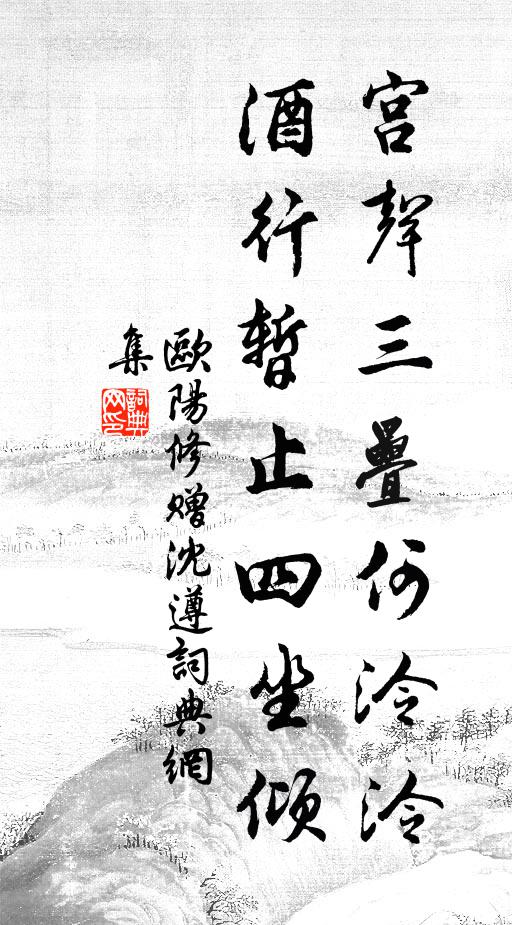 宮聲三疊何泠泠
酒行暫止四坐傾
歐陽修贈沈遵詞典網
集
詞典网印